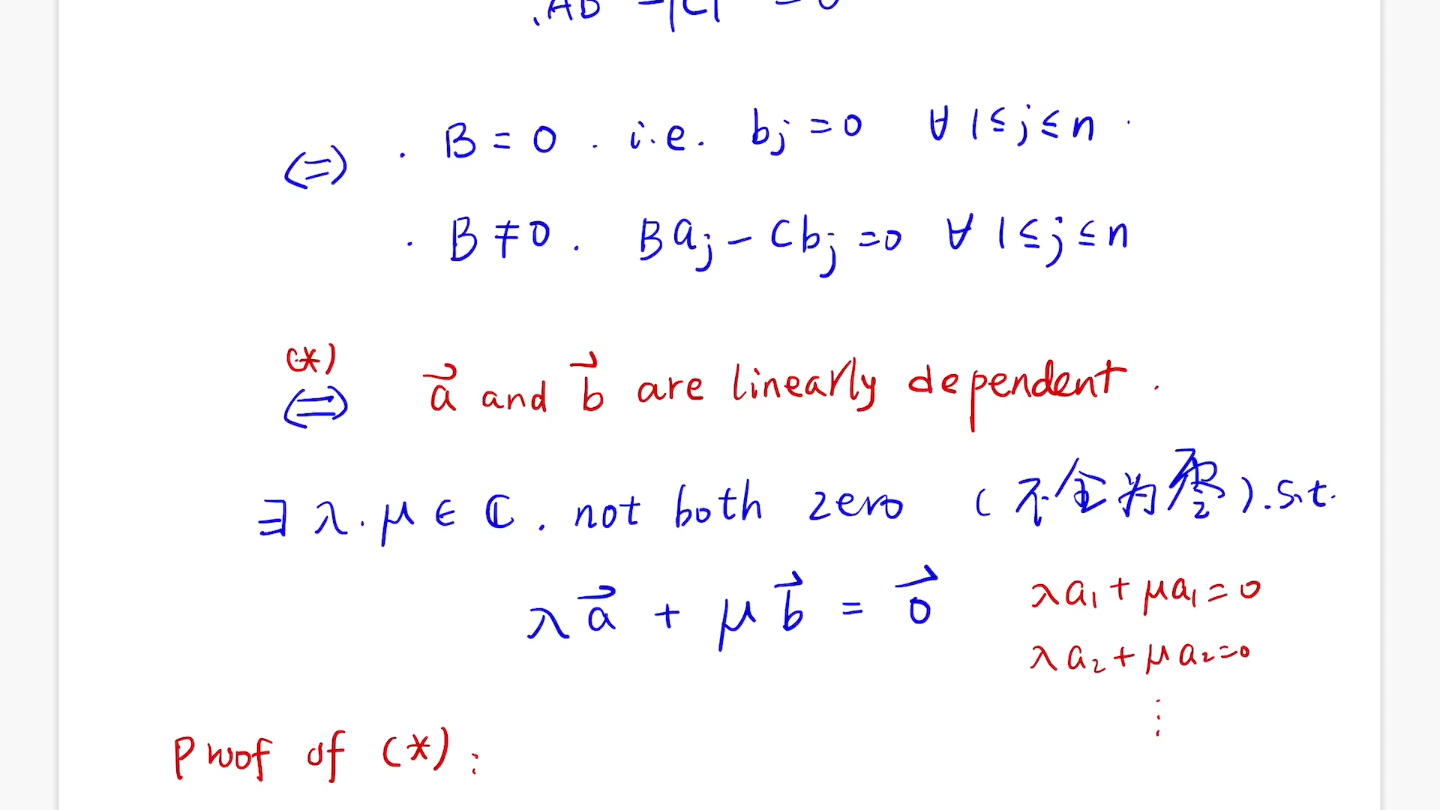 .AB - |C| = 0
(=) . B = 0 . i.e. bj = 0 ∀ 1≤j≤n .
. B ≠ 0 . Baj - Cbj = 0 ∀ 1≤j≤n
(*)
(=) a⃗ and b⃗ are linearly dependent .
∃ λ.μ ∈ ℂ . not both zero (不全为零).s.t.
λa⃗ + μb⃗ = 0⃗
λa₁ + μa₁ = 0
λa₂ + μa₂ = 0
⋮
Proof of (*) :